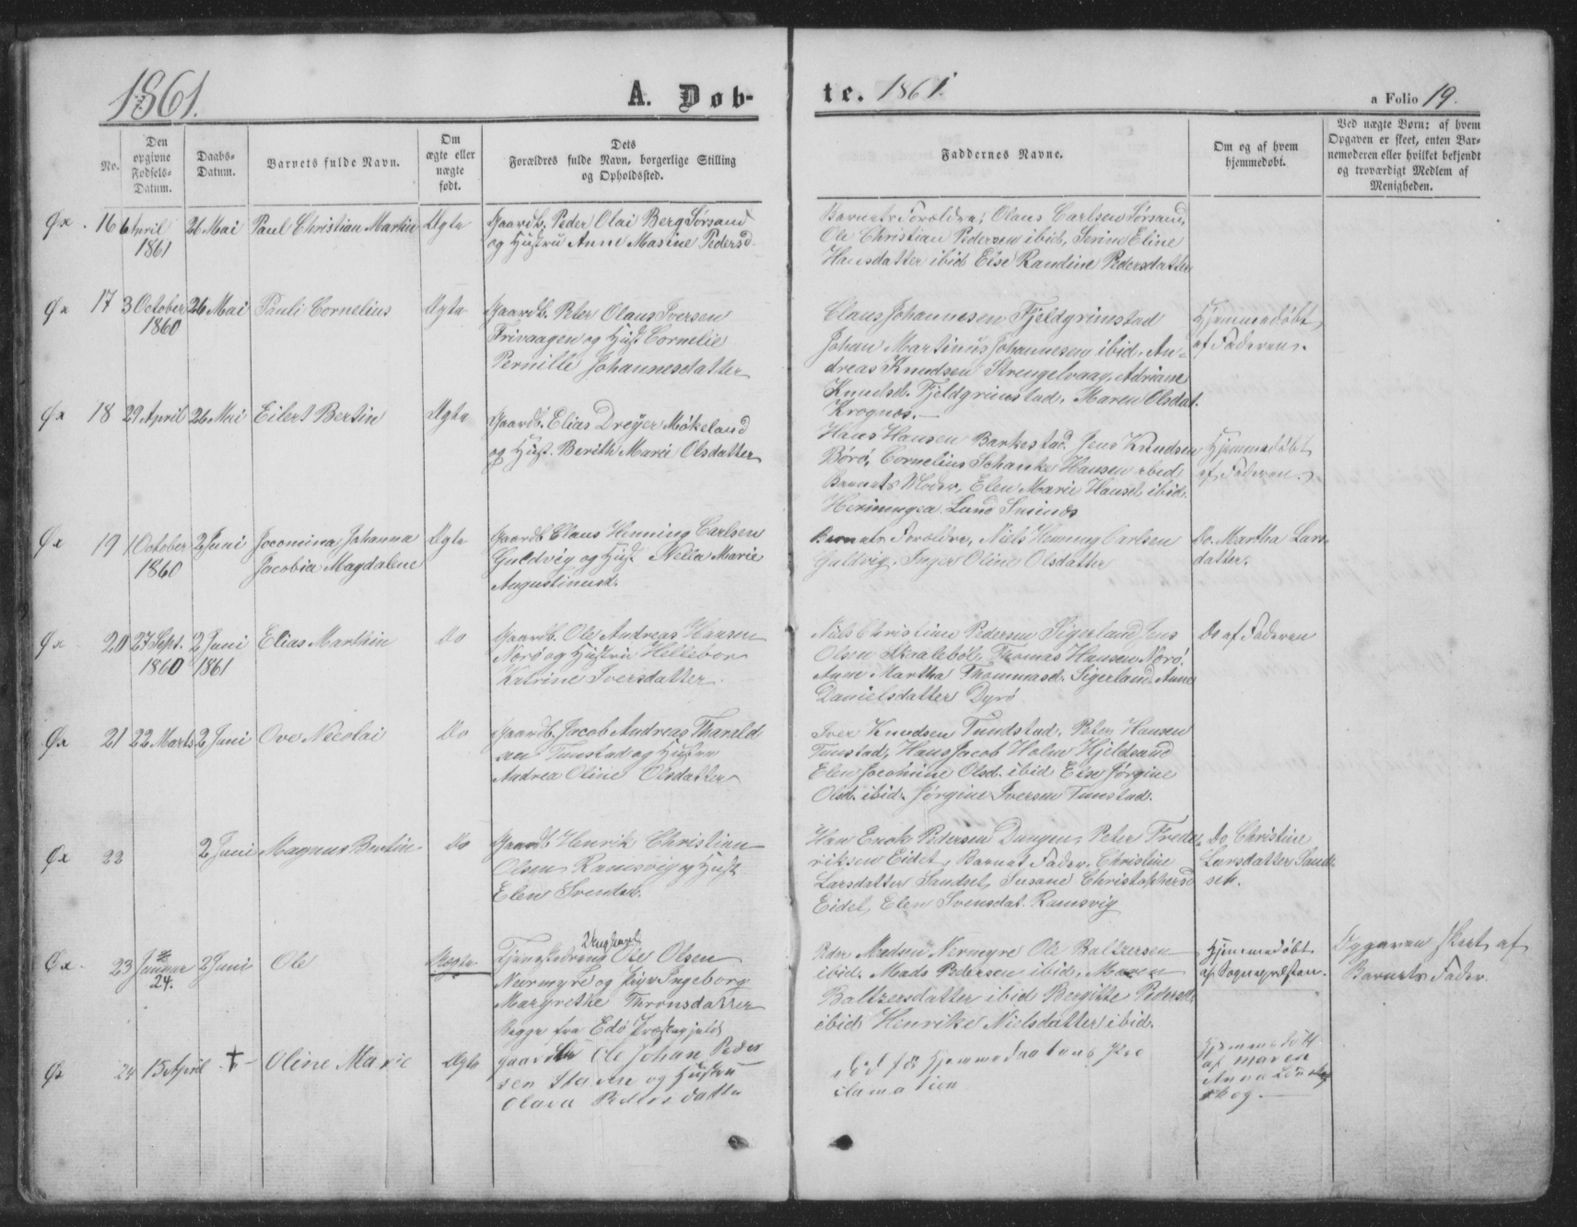 1861. A. Døb-
te. 1861. a Folio 19.
No.
Den
opgivne
Fødsels-
Datum.
Daabs-
Datum.
Barnets fulde Navn.
Om
ægte eller
nægte
født.
Dets
Forældres fulde Navn, borgerlige Stilling
og Opholdssted.
Faddernes Navne.
Om og af hvem
hjemmedøbt.
Ved nægte Børn: af hvem
Opgaven er skeet, enten Bar-
nemoderen eller hvilket bekjendt
og troværdigt Medlem af
Menigheden.
16 6 April 26 Mai Paul Christian Martin Ægte Gaardb. Peder Olai Berg Sørsand
1861 og Hustru Anne Masine Pedersd.
Barnets Forældre, Olaus Carlsen Sørsand,
Ole Christian Pedersen ibid, Serine Eline
Hansdatter ibid Else Randine Pedersdatter
17 3 October 26 Mai Pauli Cornelius Ægte Gaardb. Peter Olaus Iversen
1860 og Hust Cornelie
Pernille Johannesdatter
Claus Johannesen Fjeldgrimstad
Johan Martinus Johannesen ibid, An-
dreas Knudsen Strengelvaag, Adriane
Knudsd. Fjeldgrimstad, Maren Olsdat.
Krognes.
Hjemmedøbt
af Faderen.
18 29 April 26 Mai Eilert Bertin Ægte Gaardb. Elias Dreyer Møkeland
og Hust. Berith Marie Olsdatter
Hans Hansen Barkestad. Jens Knudsen
Børø, Cornelius Schanke Hansen ibid
Barnets Moder, Elen Marie Hansd. ibid.
Lund
Hjemmedøbt
af Faderen.
19 1 October 2 Juni Jocomina Johanna Ægte Gaardb Claus Henning Carlsen
1860 Jacobia Magdalene Guldvig og Hust Nella Marie
Augustinusd.
Barnets Forældre, Niels Henning Carlsen
Guldvig, Inger Oline Olsdatter
Do. Martha Lars-
datter.
20 27 Sept. 2 Juni Elias Marthin Do Gaardb. Ole Andreas Hansen
1860 1861 Nørø og Hustru Hellebor
Katrine Iversdatter.
Niels Christian Pedersen Sigerland Jens
Olsen Thomas Hansen Nørø,
Anne Martha Thommasd. Sigerland. Anne
Danielsdatter Dyrø
Do af Faderen
21 22 Marts 2 Juni Ove Nicolai Do Gaardb. Jacob Andreas Thareld-
sen Tunstad og Hustru
Andrea Oline Olsdatter
Iver Knudsen Tundstad. Peter Hansen
Tunstad, Hans Jacob Holm Hjeldsand
Elen Jocomine Olsd. ibid Else Jørgine
Olsd. ibid. Jørgine Iversen Tunstad.
22 2 Juni Magnus Bertin Do Gaardb. Henrik Christian
Olsen Ramsvig og Hust
Elen Svendsd.
Enok Pedersen Dungen, Peter Frede-
riksen Eidet, Barnets Fader, Christine
Larsdatter Sandset, Susane Christophersd
Eidet, Elen Svensdat. Ramsvig
Do, Christine
Larsdatter Sand-
set.
23 Januar 2 Juni Ole Nægte Tjenestedreng Ole Olsen
24. Nermyre og Pige Ingeborg
Margrethe Thronsdatter
begge fra Præstegjeld
Peder Madsen Nermyre Ole Baltzersen
ibid. Mads Pedersen ibid, Maren
Baltzersdatter ibid Bergitte Pedersd.
ibid Henrike Nielsdatter ibid.
Hjemmedøbt
af Sognepræsten.
Opgaven skeet af
Barnets Fader.
24 15 April † Oline Marie Ægte Gaardb Ole Johan Peder
sen og Hustru
Olava Pedersdatter
død før Hjemmedaabens
Hjemmedøbt
af Maren
Anna
skog.